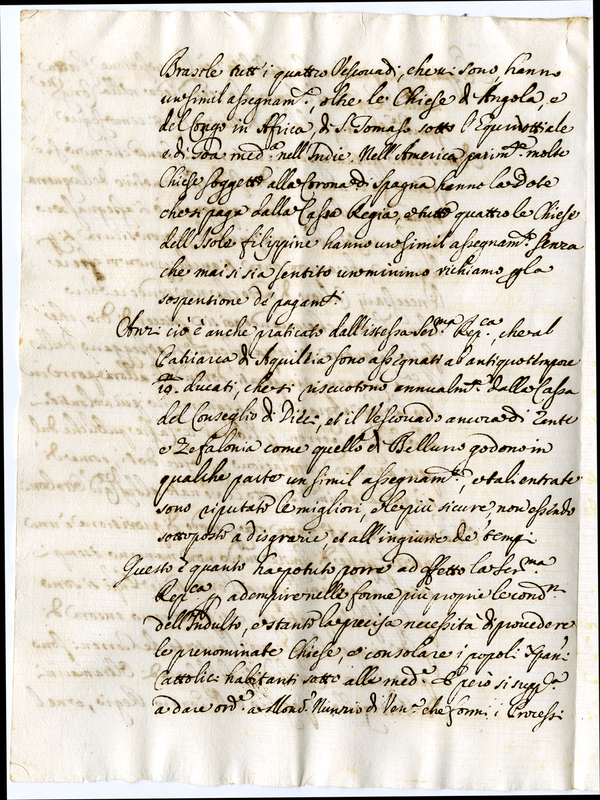 Brasile tutt'i quattro Vescovadi, che vi sono, hanno
un simil assegnam.to, oltre le Chiese di Angola, e
del Congo in Africa, di S. Tomaso sotto l'Equinottiale
e di Goa med.a nell'Indie. Nell'America parim.te molte
Chiese soggette alla Corona di Spagna hanno la Dote
che si paga dalla Cassa Regia, e tutte quattro le Chiese
dell'Isole filippine hanno un simil assegnam.to senza
che mai si sia sentito un minimo richiamo p la
sospensione de' pagam.ti
Anzi ciò è anche praticato dall'istessa Ser.ma Rep.ca, che al
Patriarca di Aquileia sono assegnati ab antiquo tempore
ducati, che si riscuotono annualm.te dalla Cassa
del Conseglio di Dieci, et il Vescovado ancora di Zante
e Zefalonia come quello di Belluno godono in
qualche parte un simil assegnam.to, e tali entrate
sono riputate le migliori, e le più sicure non essendo
sottoposte a disgrazie et all'ingiurie de' tempi
Questo è quanto ha potuto porre ad effetto la Ser.ma
Rep.ca p adempire nelle forme più proprie le cond.ni
dell'Indulto, e stante la precisa necessità di provedere
le prenominate Chiese, e consolare i popoli Xpani
Cattolici habitanti sotto alle med.e E però si supp.ca
a dare ord.e a Mons.r Nunzio di Ven.a che formi i Processi